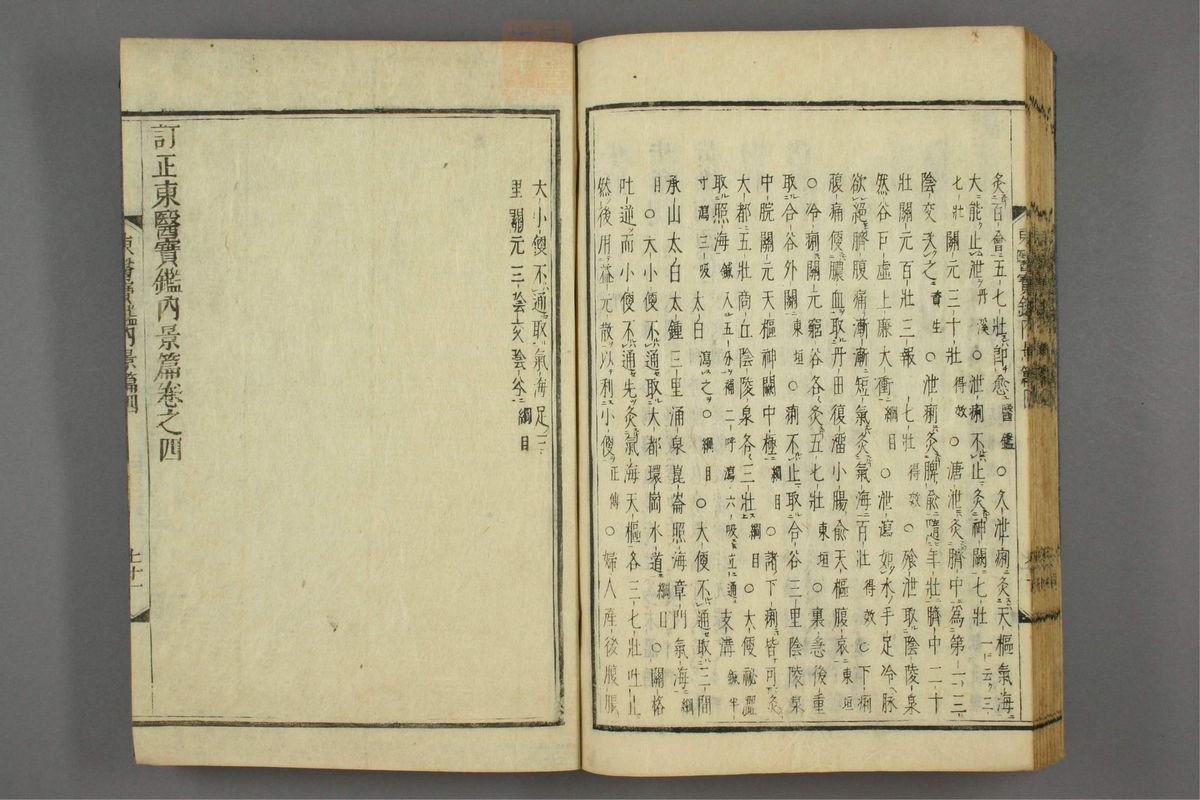 灸百會五七壯卽愈醫鑑○久泄痢灸天樞氣海
大能止泄丹溪○泄痢不止灸神闕七壯一云三
七壯關元三十壯得效○溏泄灸臍中爲第一三
陰交次之資生○泄痢灸脾兪隨年壯臍中二十
壯關元百壯三報七壯得效○飱泄取陰陵泉
然谷巨虛上廉太衝綱目○泄瀉如水手足冷脉
欲絕臍腹痛漸漸短氣灸氣海百壯得效○下痢
腹痛便膿血取丹田復溜小腸兪天樞腹哀東垣
○冷痢關元窮谷各灸五七壯東垣○裏急後重
取合谷外關東垣○痢不止取合谷三里陰陵泉
中脘關元天樞神闕中極綱目○諸下痢皆可灸
大都五壯商丘陰陵泉各三壯綱目○大便祕澁
取照海鍼入五分補二呼瀉六吸立通支溝鍼半
寸瀉三吸太白瀉之○綱目○大便不通取三間
承山太白太鍾三里涌泉崑崙照海章門氣海綱
目○大小便不通取大都環岡水道綱目○關格
吐逆而小便不通先灸氣海天樞各三七壯吐止
然後用益元散以利小便正傳○婦人産後腹脹
大小便不通取氣海足三
里關元三陰交陰谷綱目
訂正東醫寶鑑內景篇卷之四
東醫寶鑑內景篇四